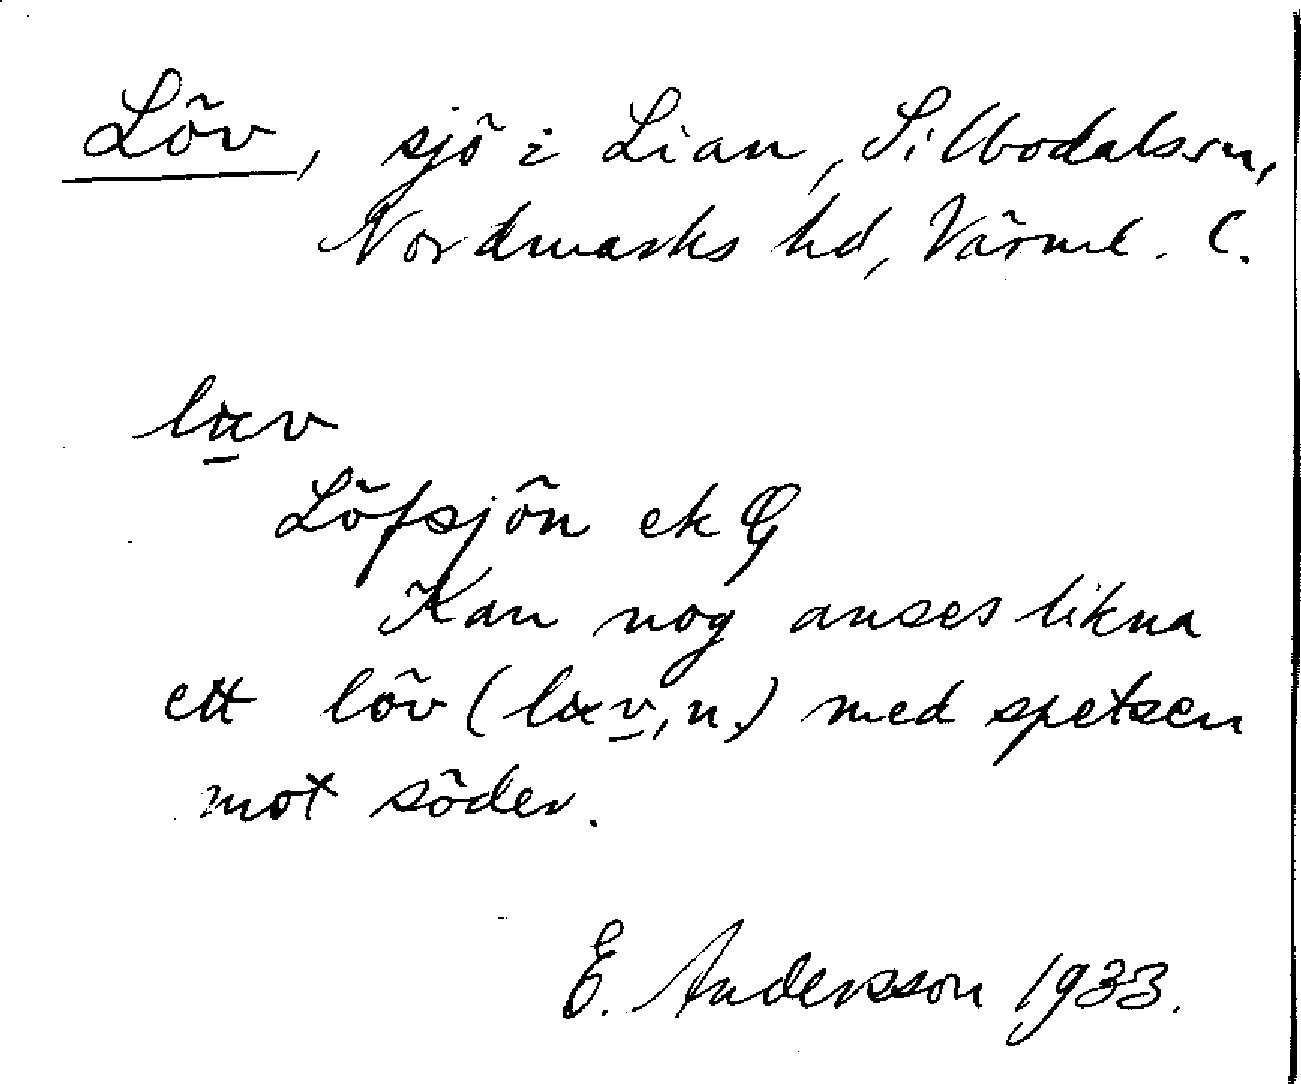 Löv, sjö i Lian, Silbodalssn,
Nordmarks hd, Värml. l.
lɯv
Löfsjön ek G
Kan nog anses likna
ett löv (lɯv, n.) med spetsen
mot söder.
E. Andersson 1933.